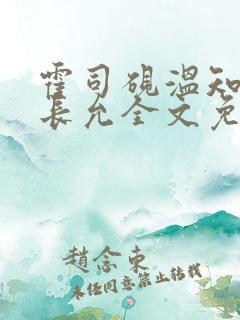 霍司砚温知
长允全文免
赵念东
未经同意禁止转载